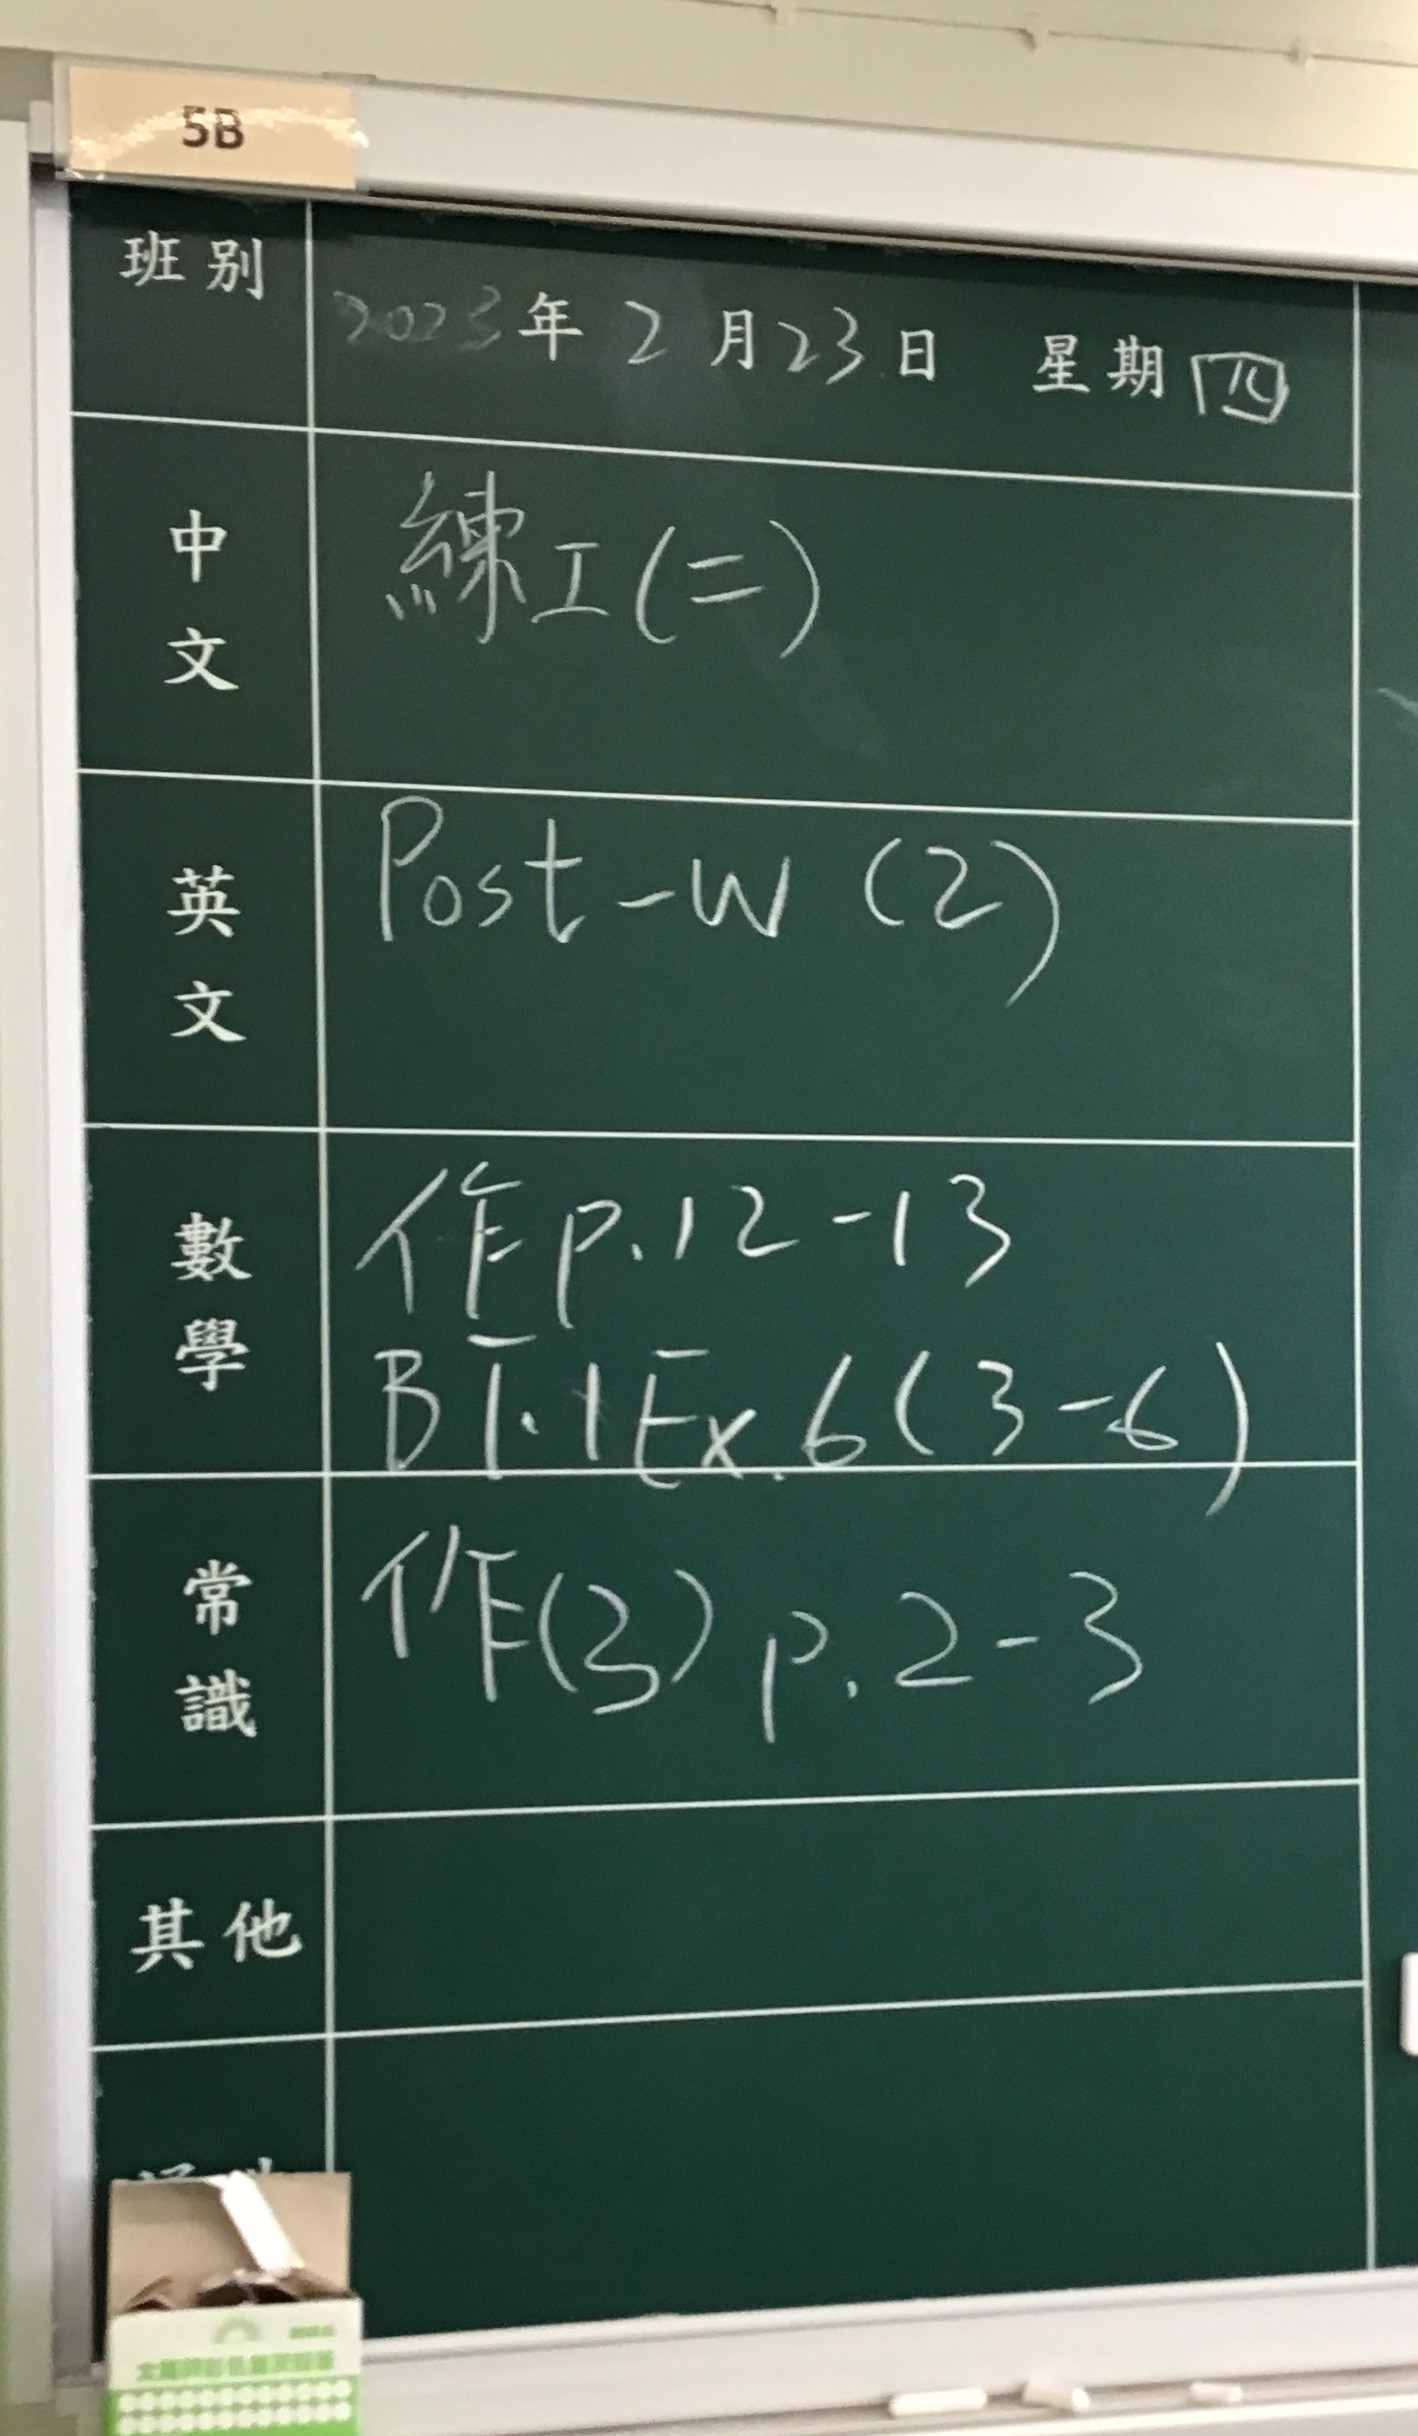 5B
班別
2023年2月23日 星期四
中文
練工(二)
英文
Post-W (2)
數學
作p.12-13
BT.1Ex.6(3-6)
常識
作(3)p.2-3
其他